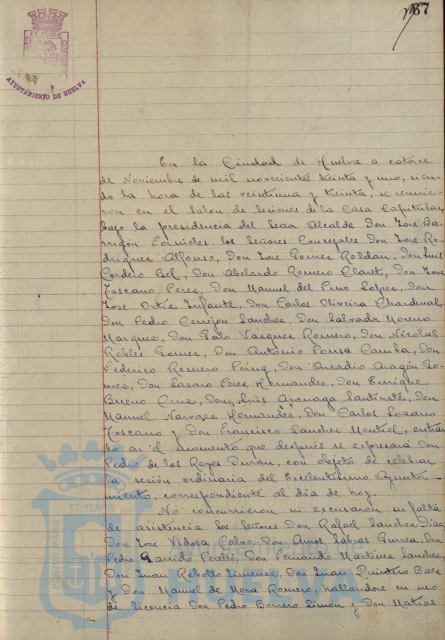 87
AYUNTAMIENTO DE HUELVA
En la Ciudad de Huelva a catorce
de Noviembre de mil novecientos treinta y uno, sien-
do la hora de las veintiuna y treinta, se reunie-
ron en el Salon de Sesiones de la Casa Capitular,
bajo la presidencia del Señor Alcalde Don José Ba-
rrigón Fornieles los Señores Concejales Don José Ro-
driguez Alfonso, Don José Gomez Roldán, Don Luis
Cordero Bel, Don Abelardo Romero Claret, Don José
Toscano Perez, Don Manuel del Pino Lopez, Don
José Ortiz Infante, Don Carlos Oliveira Chardenal,
Don Pedro Cerrejon Sanchez, Don Salvador Moreno
Marquez, Don Galo Vazquez Romero, Don Nicolas
Robles Gomez, Don Antonio Pousa Camba, Don
Federico Romero Don Arcadio Aragón Go-
mez, Don Lazaro Perez Hernandez, Don Enrique
Bueno Cruz, Don Luis Don
Manuel Hernandez, Don Carlos Lozano
Toscano y Don Francisco Sanchez Montiel, entran-
do en el momento que despues se expresará Don
Pedro de los Reyes Durán, con objeto de celebrar
la sesión ordinaria del Excelentisimo Ayunta-
miento, correspondiente al dia de hoy.
No concurrieron ni excusaron su falta
de asistencia los Señores Don Rafael Sanchez Diaz,
Don José Vidosa Calvo, Don Amós Sabrás Gurrea, Don
Pedro Garrido Perelló, Don Fernando Martinez Sanchez,
Don Juan Rebollo Jimenez, Don Juan Quintero Baez
y Don Manuel de Mora Romero, hallandose en uso
de licencia Don Pedro Borrero Limon y Don Matias